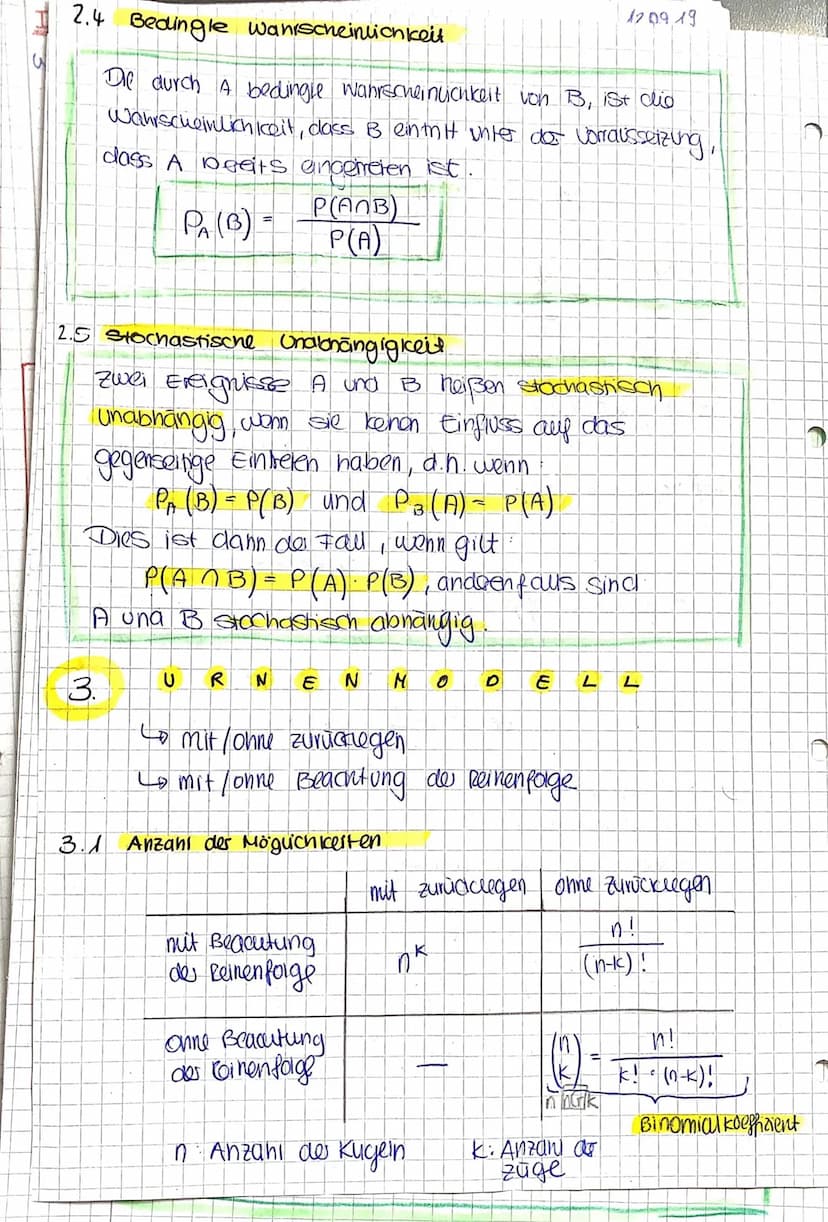 2.4 Bedingte Wahrscheinlichkeit 12 09 19
Die durch A bedingte Wahrscheinlichkeit von B, ist die
Wahrscheinlichkeit, dass B eintritt unter der Vorraussetzung,
dass A bereits eingetreten ist.
P_A(B) = P(A∩B) / P(A)
2.5 Stochastische Unabhängigkeit
Zwei Ereignisse A und B heißen stochastisch
unabhängig, wenn sie keinen Einfluss auf das
gegenseitige Eintreten haben, d.h. wenn:
P_A(B) = P(B) und P_B(A) = P(A)
Dies ist dann der Fall, wenn gilt:
P(A ∩ B) = P(A) · P(B), anderenfalls sind
A und B stochastisch abhängig.
3. URNENMODELL
↳ mit/ohne zurücklegen
↳ mit/ohne Beachtung der Reihenfolge
3.1 Anzahl der Möglichkeiten
mit zurücklegen ohne zurücklegen
mit Beachtung
der Reihenfolge n^k n! / (n-k)!
ohne Beachtung
der Reihenfolge — (n k) = n! / (k! · (n-k)!)
n nCr k
Binomialkoeffizient
n: Anzahl der Kugeln k: Anzahl der
züge